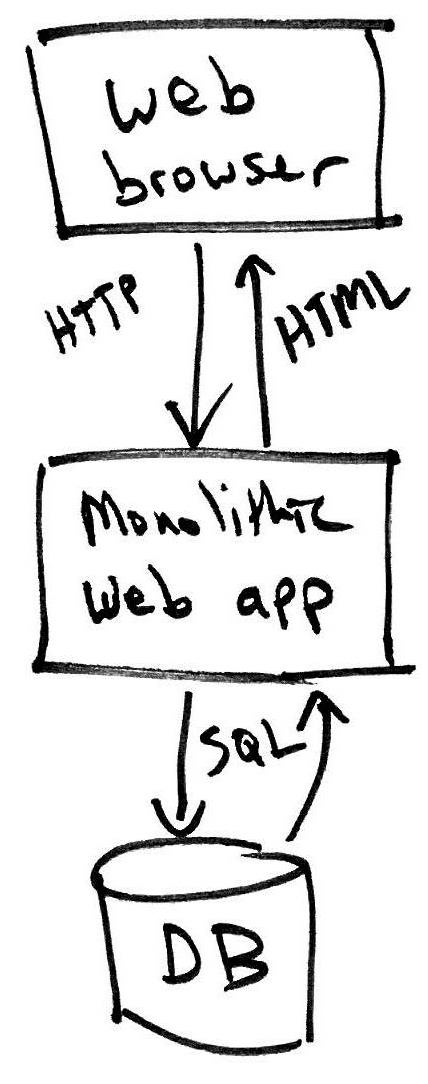 Web
browser
HTTP
HTML
Monolithic
Web app
SQL
DB